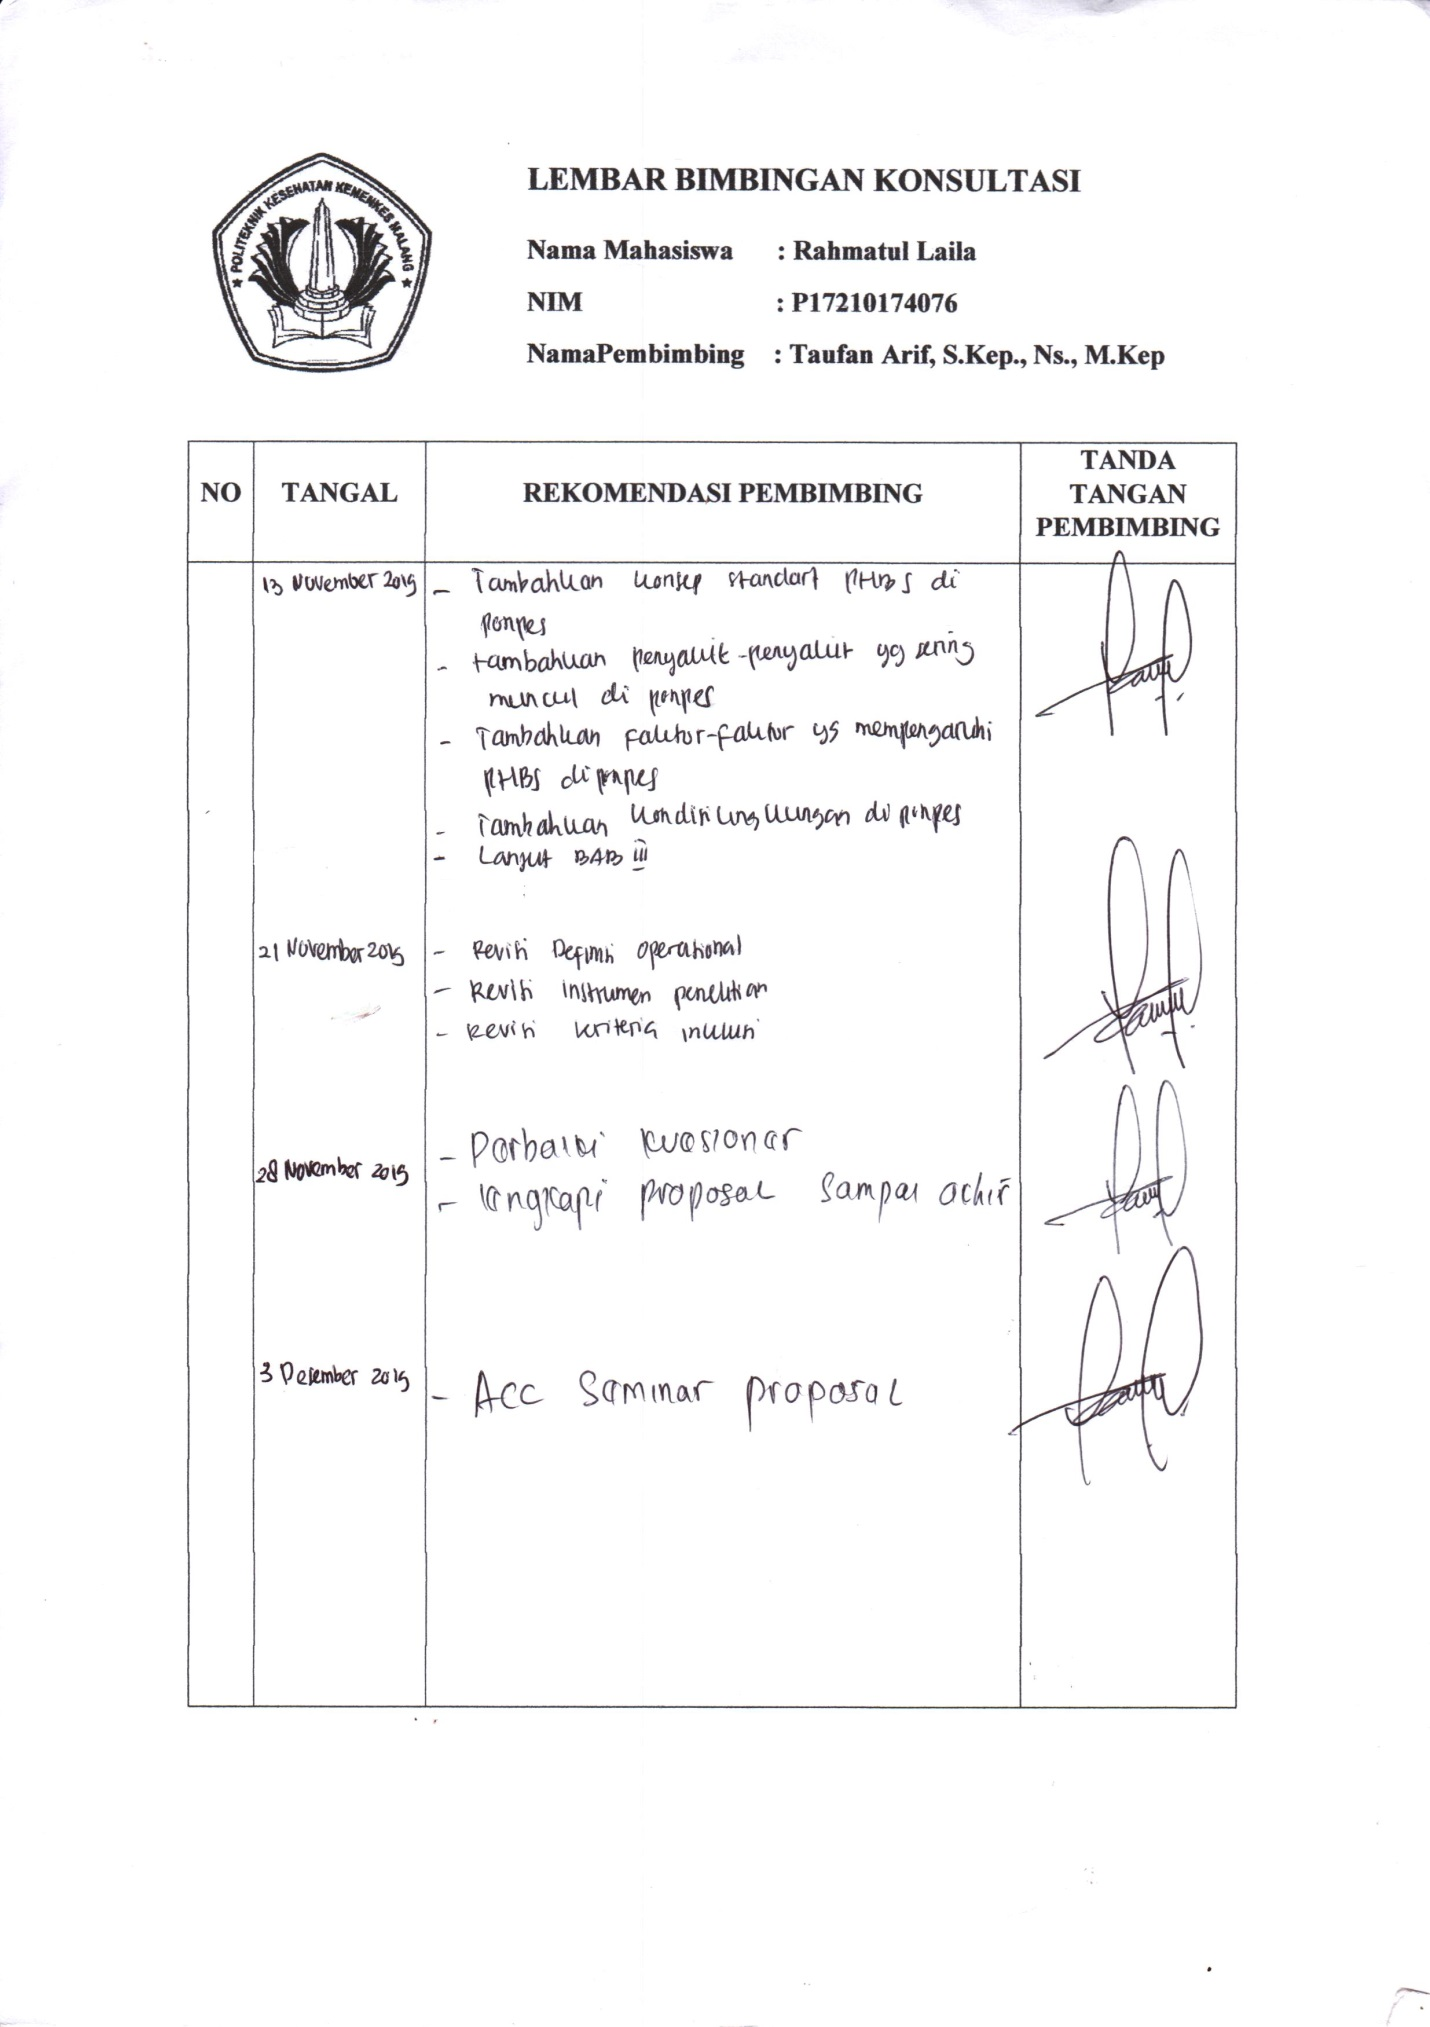 POLITEKNIK KESEHATAN KEMENKES MALANG
LEMBAR BIMBINGAN KONSULTASI
Nama Mahasiswa : Rahmatul Laila
NIM : P17210174076
NamaPembimbing : Taufan Arif, S.Kep., Ns., M.Kep
NO TANGAL REKOMENDASI PEMBIMBING TANDA TANGAN PEMBIMBING
13 November 2019 - Tambahkan konsep standart PHBS di
ponpes
- tambahkan penyakit-penyakit yg sering
muncul di ponpes
- Tambahkan faktor-faktor yg mempengaruhi
PHBS di ponpes
- Tambahkan kondisi lingkungan di ponpes
- Lanjut BAB III
21 November 2019 - Revisi Definisi operational
- Revisi instrumen penelitian
- Revisi kriteria inklusi
28 November 2019 - Perbaiki kuesioner
- lengkapi proposal sampai achir
3 Desember 2019 - Acc Seminar proposal